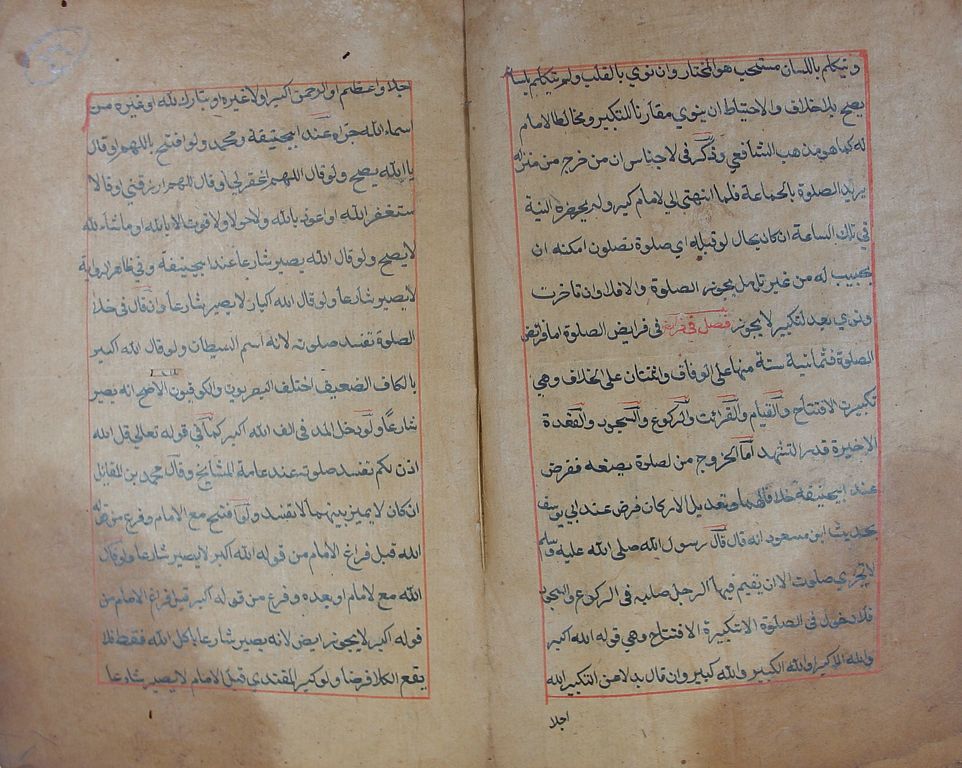 ويتكلم باللسان مستحب هو المختار وان نوي بالقلب ولو يتكلم بلسانه
يصح بلا خلاف والاحتياط ان ينوي مقارنا للتكبير ومخالطا لامام
له كما هو مذهب الشافعي وذكر في لاجناس ان من خرج من منزله
يريد الصلوة بالجماعة فلما انتهتي الي لامام كبر ولم يحضره النية
في تلك الساعة ان كان بحال لو قيل له اي صلوة تصلون امكنه ان
يجيب له من غير تامل يجوز الصلوة والا فلا وان تاخرت
ونوي بعد لتكبير لا يجوز فصل في فرايض الصلوة اما فرايض
الصلوة فثمانية ستة منها على الوفاق واثنتان على الخلاف وهي
تكبيرت الافتتاح والقيام والقرائت والركوع والسجود والقعدة
الاخيرة قدر التشهد اما الخروج من لصلوة بصنعه ففرض
عند ابيحنيفة خلافا لهما وتعديل الاركان فرض عند ابي يوسف
بحديث ابن مسعود انه قال قال رسول الله صلى الله عليه وسلم
لا تجزي صلوت الا ان تقيم فيها الرجل صلبه في الركوع والسجود
فلا دخول في الصلوة الا بتكبيرة الافتتاح وهي قوله الله اكبر
والله الاكبر والله الكبير والله كبير وان قال بدلا من التكبير الله
اجل
اجل او اعظم او الرحمن اكبر اولا غيره او تبارك الله او غيره من
اسماء الله جزاه عند ابيحنيفة ومحمد ولو افتتح باللهم او قال
يا الله يصح ولو قال اللهم اغفر لي او قال اللهم ارزقني او قال ا
ستغفر الله او اعوذ بالله ولا حول ولا قوت الا بالله او ما شاء الله
لا يصح ولو قال الله يصير شارعا عند ابيحنيفة وفي ظاهر الرواية
لا يصير شارعا ولو قال الله اكبار لا يصير شارعا وان قال في خلال
الصلوة تفسد صلوته لانه اسم الشيطان ولو قال الله كبير
بالكاف الضعيف اختلف البصريون والكوفيون الاصح انه يصير
شارعا ولو دخل المد في الف الله اكبر كما في قوله تعالي قل الله
اذن لكم تفسد صلوته عند عامة المشايخ وقال محمد بن المقاتل
ان كان لا يميز بينهما لا تفسد ولو افتتح مع الامام وفرغ من قوله
الله قبل فراغ الامام من قوله الله اكبر لا يصير شارعا ولو كان
الله مع لامام او بعده وفرغ من قوله اكبر قبل فراغ الامام من
قوله اكبر لا يجوز ايض لانه يصير شارعا بكل الله فقط فلا
يقع الكل فرضا ولو كبر المقتدي قبل الامام لا يصير شارعا